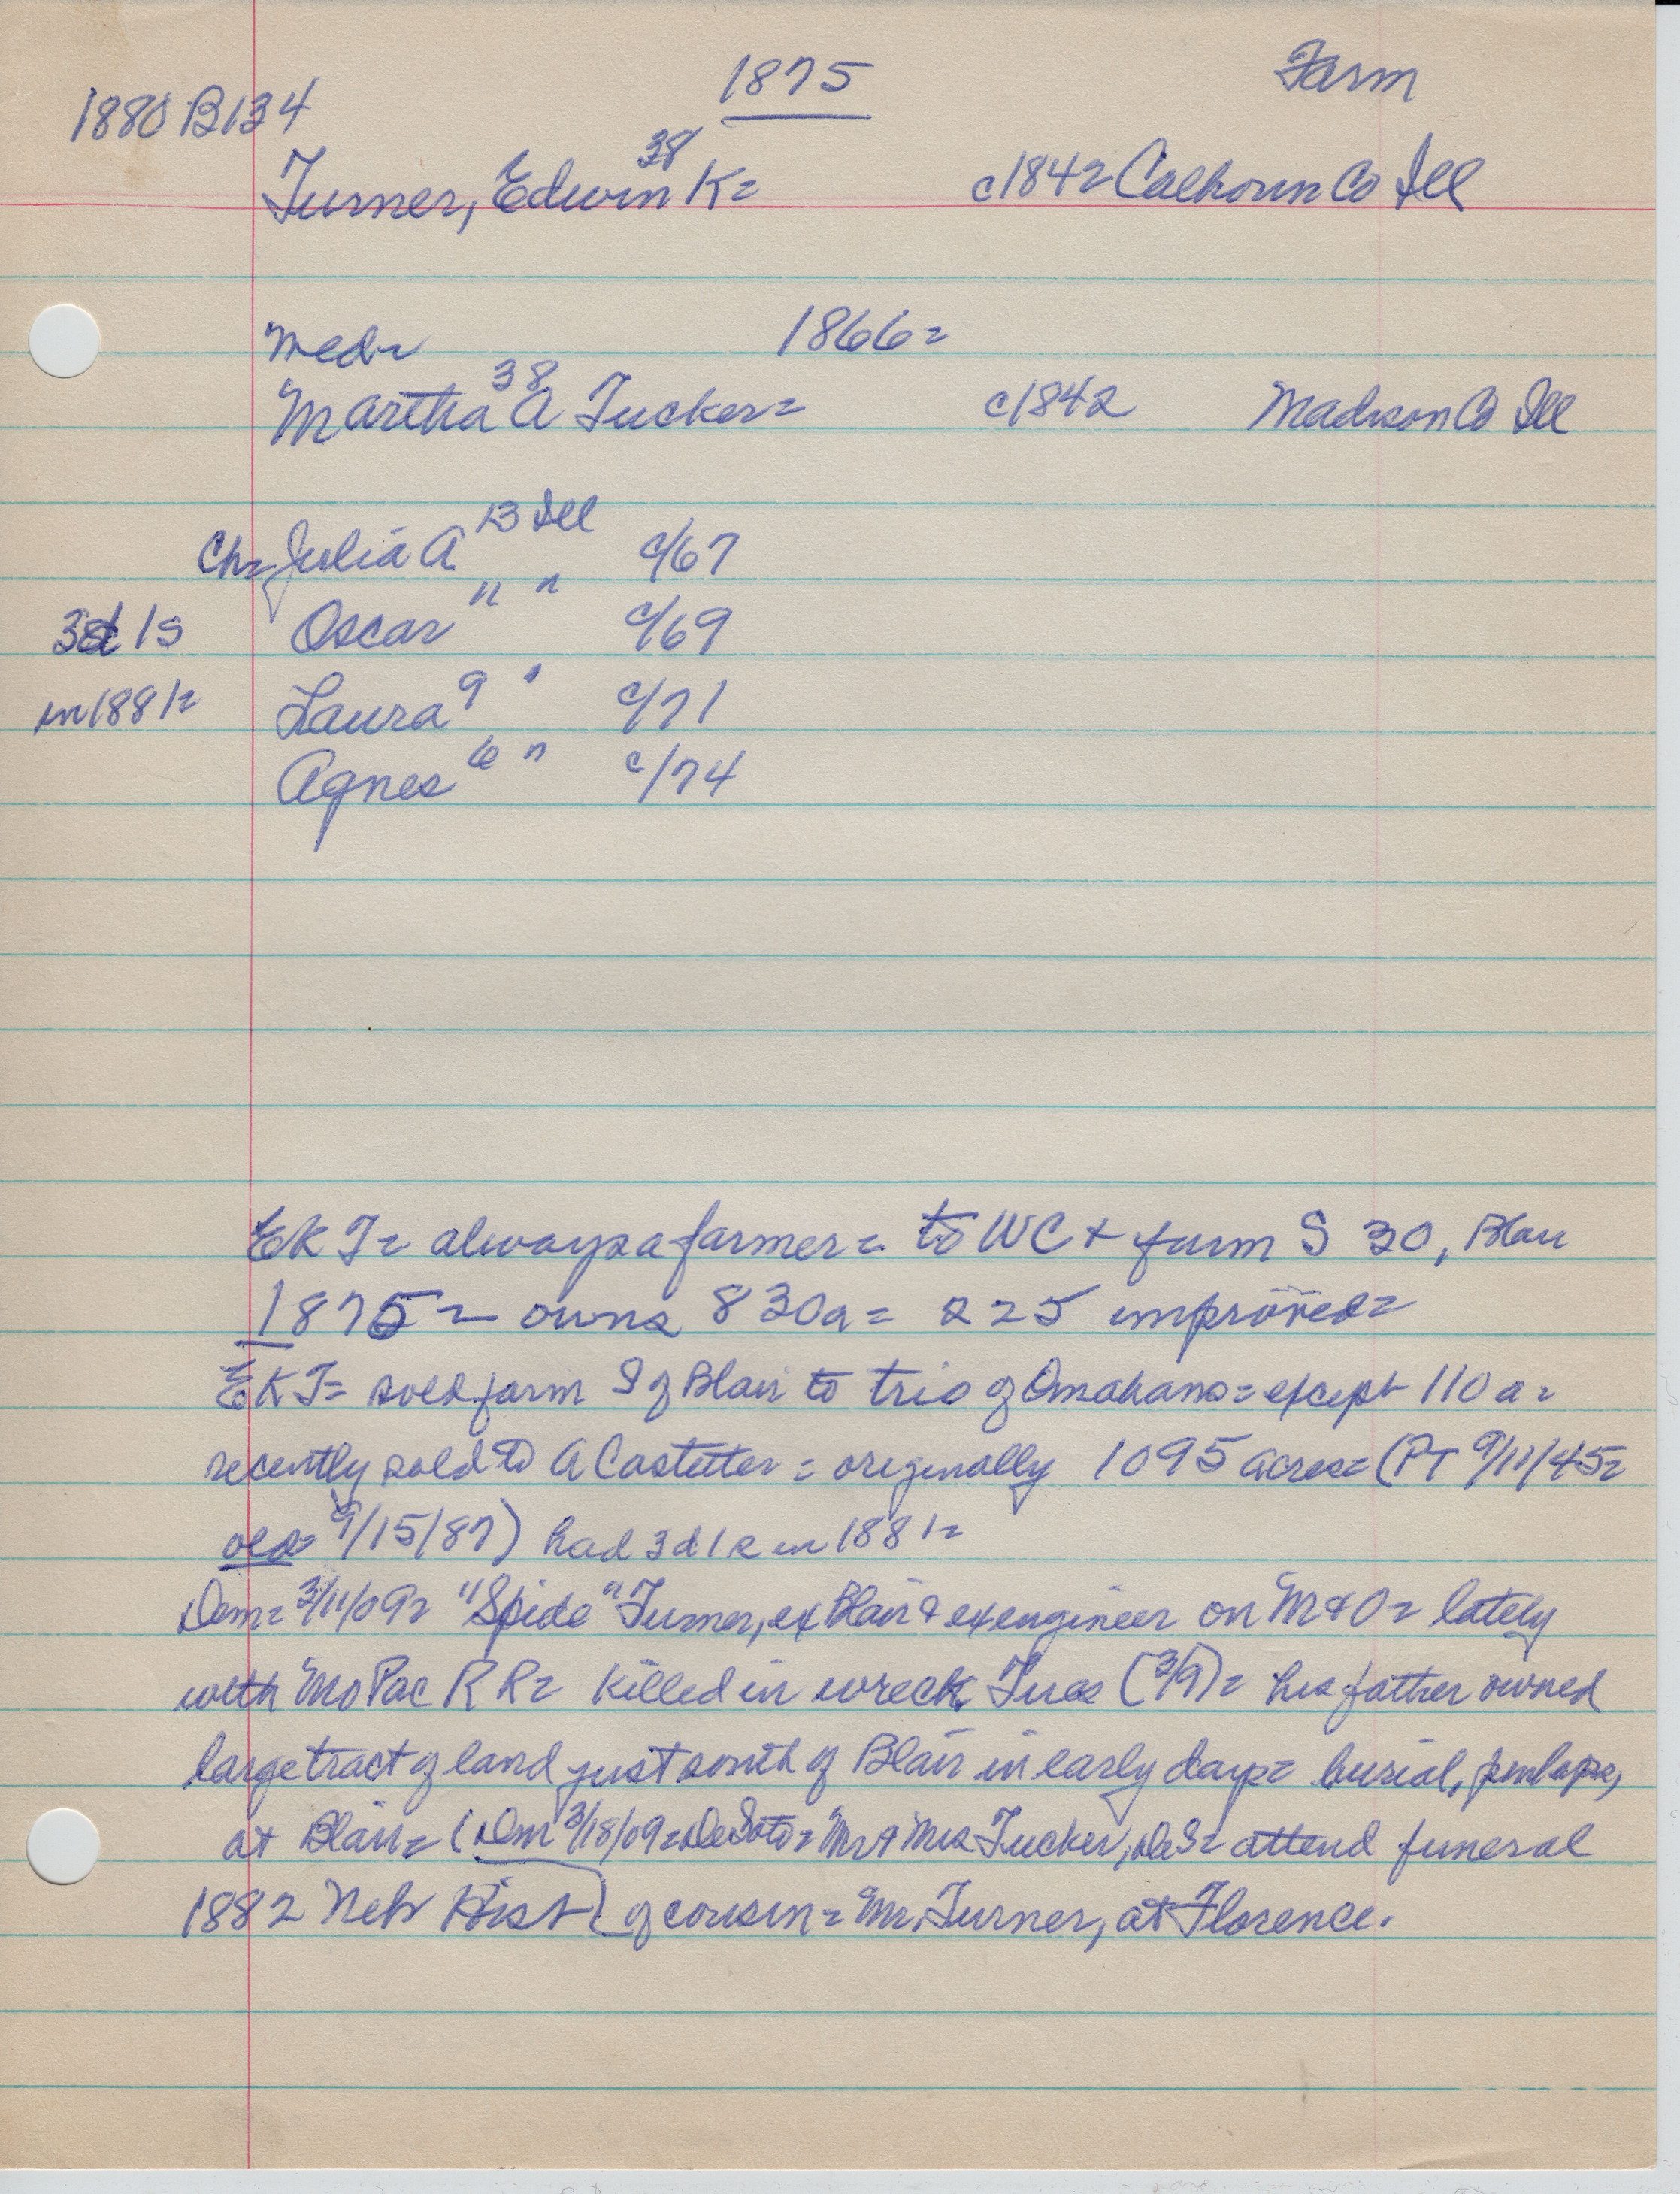 1875
Farm
1880 B134
38
Turner, Edwin K= c1842 Calhoun Co Ill
Med= 1866=
38
Martha A Tucker= c1842 Madison Co Ill
13 Ill
Ch= Julia A c/67
" "
3d 1s Oscar c/69
in 1881= Laura 9 " c/71
Agnes 6 " c/74
EKT= always a farmer= to WC + farm S 30, Blair
1875= owns 830a= 225 improved=
EKT= sold farm S of Blair to trio of Omahans= except 110 a=
recently sold to A Castetter= originally 1095 acres= (PT 9/11/45=
old= 9/15/87) had 3d 1s in 1881=
Dem= 3/11/09= "Spide" Turner, ex Blair & ex engineer on M&O= lately
with MoPac RR= killed in wreck Tues (3/9)= his father owned
large tract of land just south of Blair in early days= burial, perhaps,
at Blair= (Dem 3/18/09=DeSoto= Mr & Mrs Tucker, DeS= attend funeral
1882 Neb Hist) of cousin= Mr. Turner, at Florence.